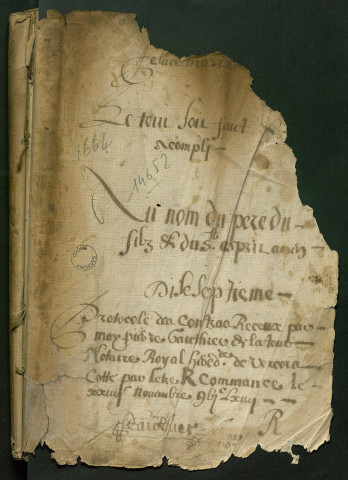 Le tout soit faict
acompli
1664
14652
Au nom du pere du
filz & du St esprit amen
Dixseptieme
Protocole des Contras Receux par
moy pierre Gauthier de la tour
Notaire Royal hered.re de Vercors
Cotté par letre R Commance le
xxiiij novembre
Gauthier
R